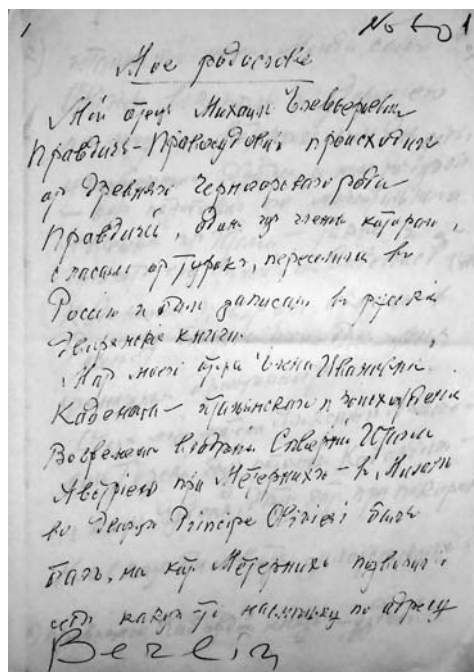 1 No 60 1
Мое родословіе
Мой отецъ Михаилъ
Правдичъ-Правосудовичъ происходилъ
отъ древняго Черногорскаго рода
Правдичей, одинъ изъ членовъ котораго,
спасаясь отъ Турокъ, переселился въ
Россію и былъ записанъ въ русскія
дворянскія книги.
Мать моего отца Ивановна
итальянскаго происхожденія
Во времена владѣнія Сѣверной Италіи
Австріею при Метернихъ въ Миланѣ
во дворцѣ Principe былъ
балъ, на кот. Метернихъ позволилъ
себѣ какую то насмѣшку по адресу
Berlin